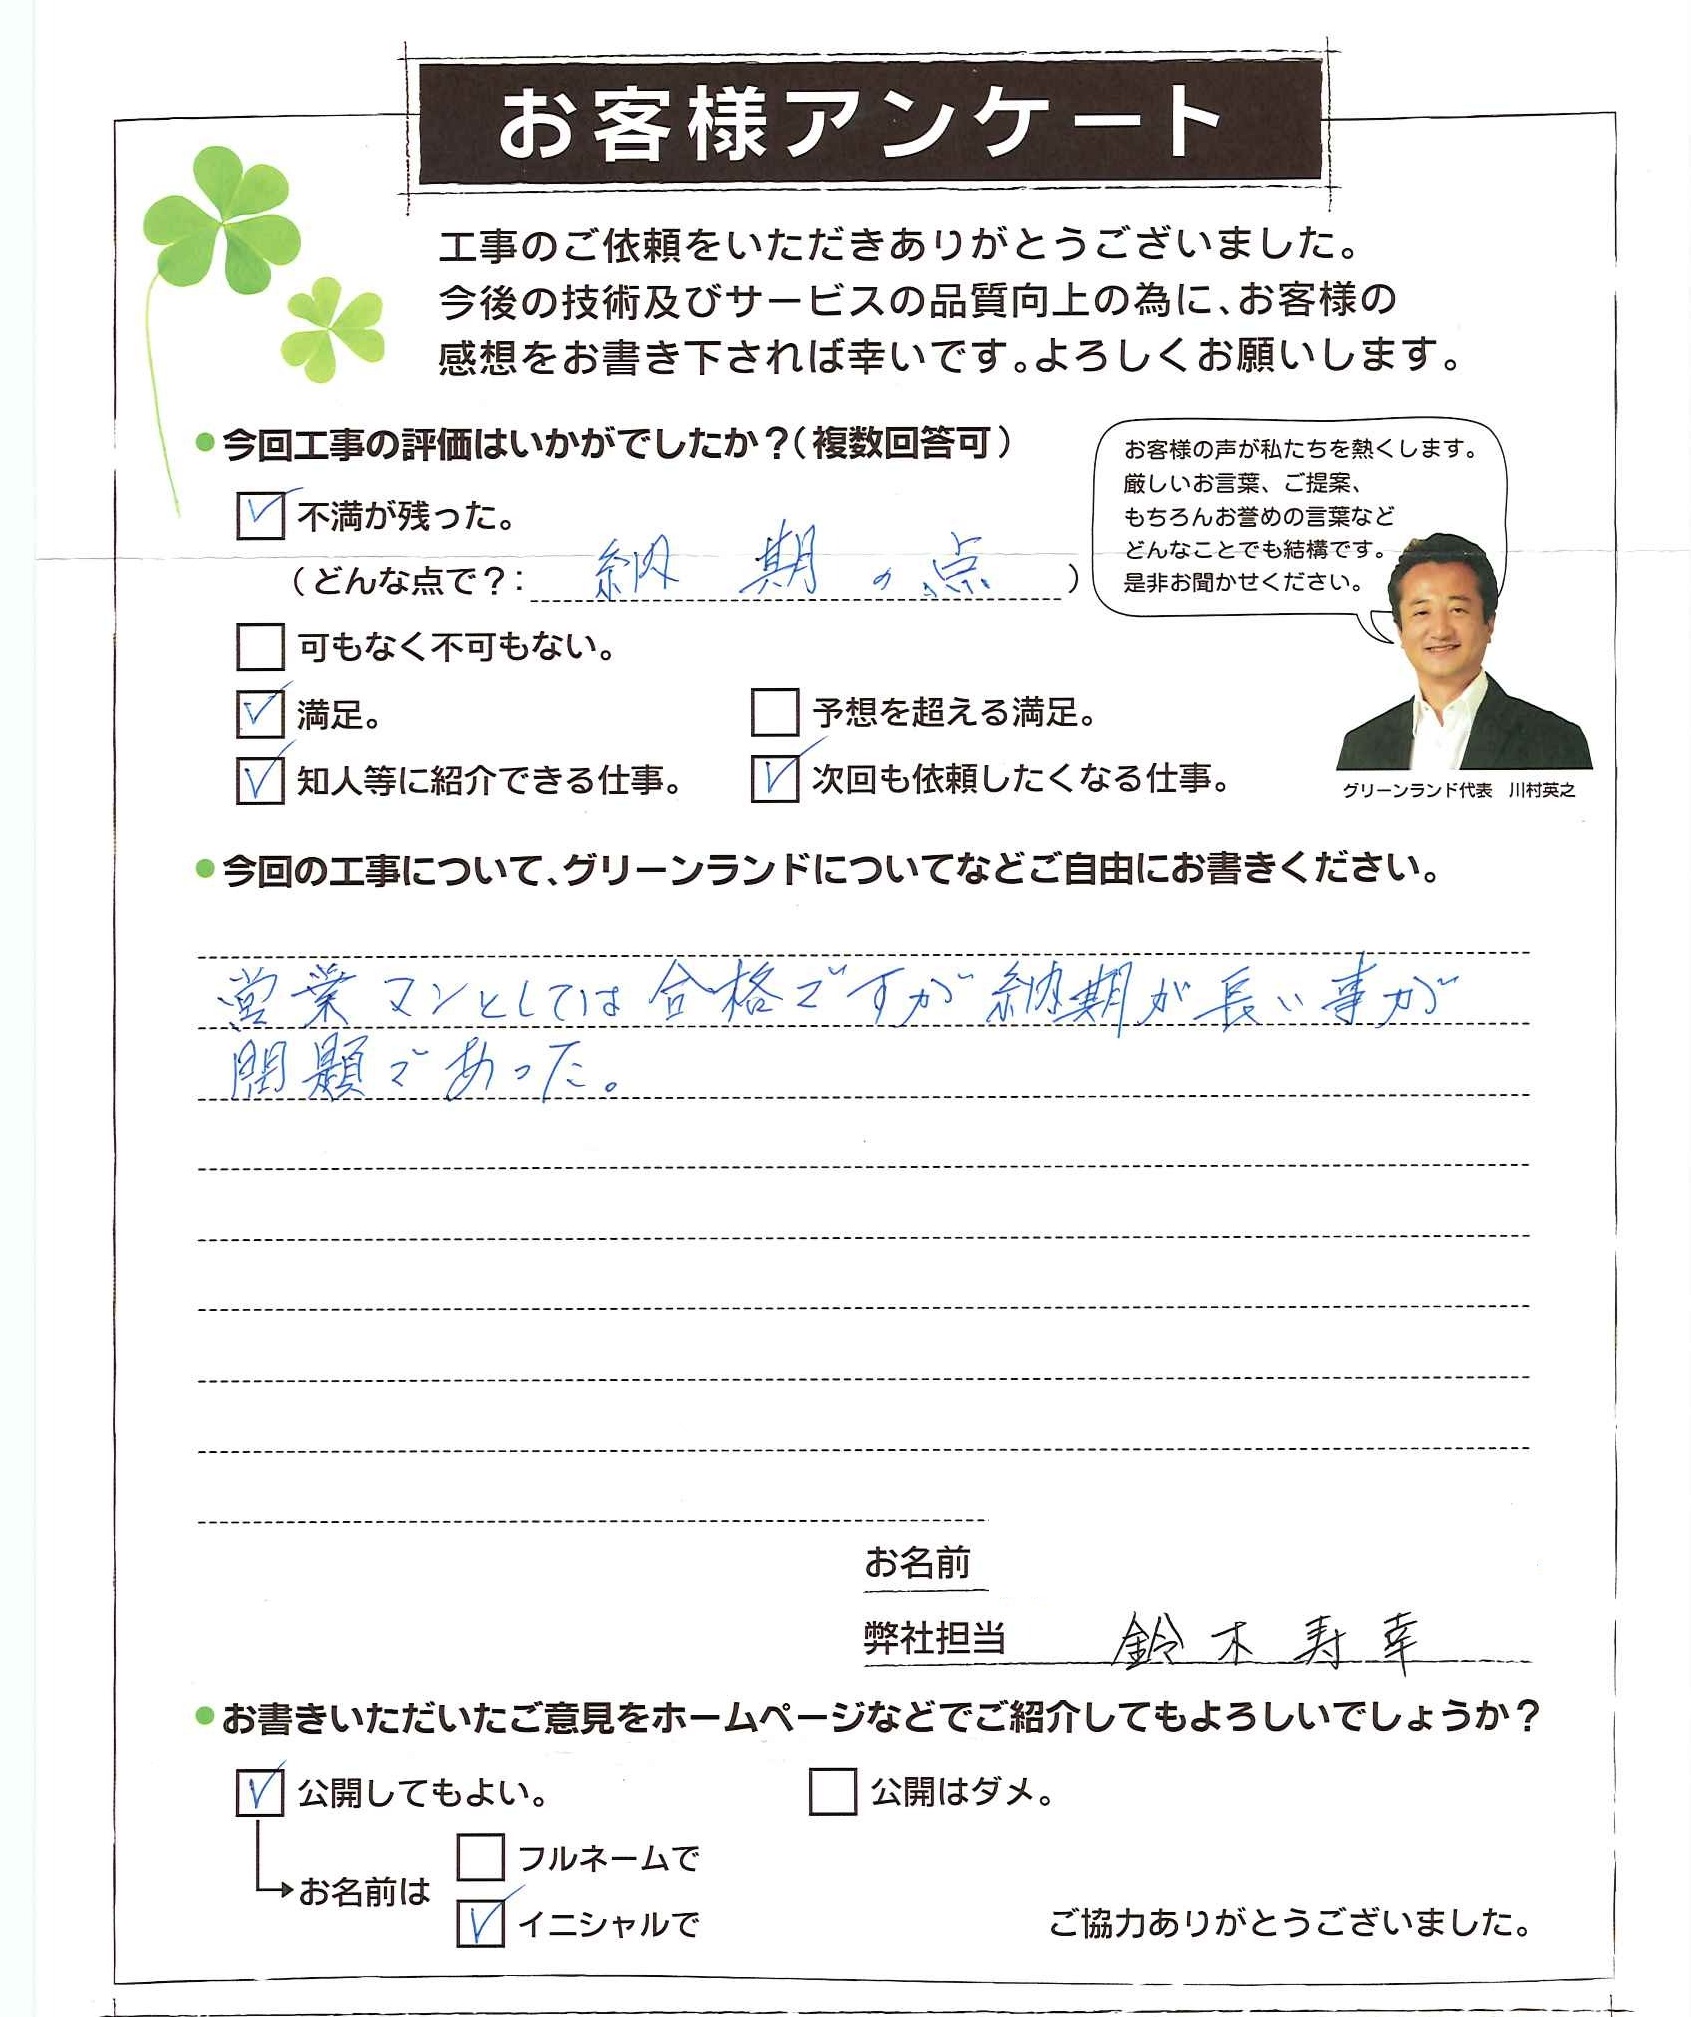 お客様アンケート
工事のご依頼をいただきありがとうございました。
今後の技術及びサービスの品質向上の為に、お客様の
感想をお書き下されば幸いです。よろしくお願いします。
●今回工事の評価はいかがでしたか？（複数回答可）
不満が残った。
（どんな点で？：納期の点）
可もなく不可もない。
満足。
予想を超える満足。
知人等に紹介できる仕事。
次回も依頼したくなる仕事。
お客様の声が私たちを熱くします。
厳しいお言葉、ご提案、
もちろんお誉めの言葉など
どんなことでも結構です。
是非お聞かせください。
グリーンランド代表　川村英之
●今回の工事について、グリーンランドについてなどご自由にお書きください。
営業マンとしては合格ですが納期が長い事が
問題であった。
お名前
弊社担当　鈴木寿幸
●お書きいただいたご意見をホームページなどでご紹介してもよろしいでしょうか？
公開してもよい。
公開はダメ。
お名前は
フルネームで
イニシャルで
ご協力ありがとうございました。